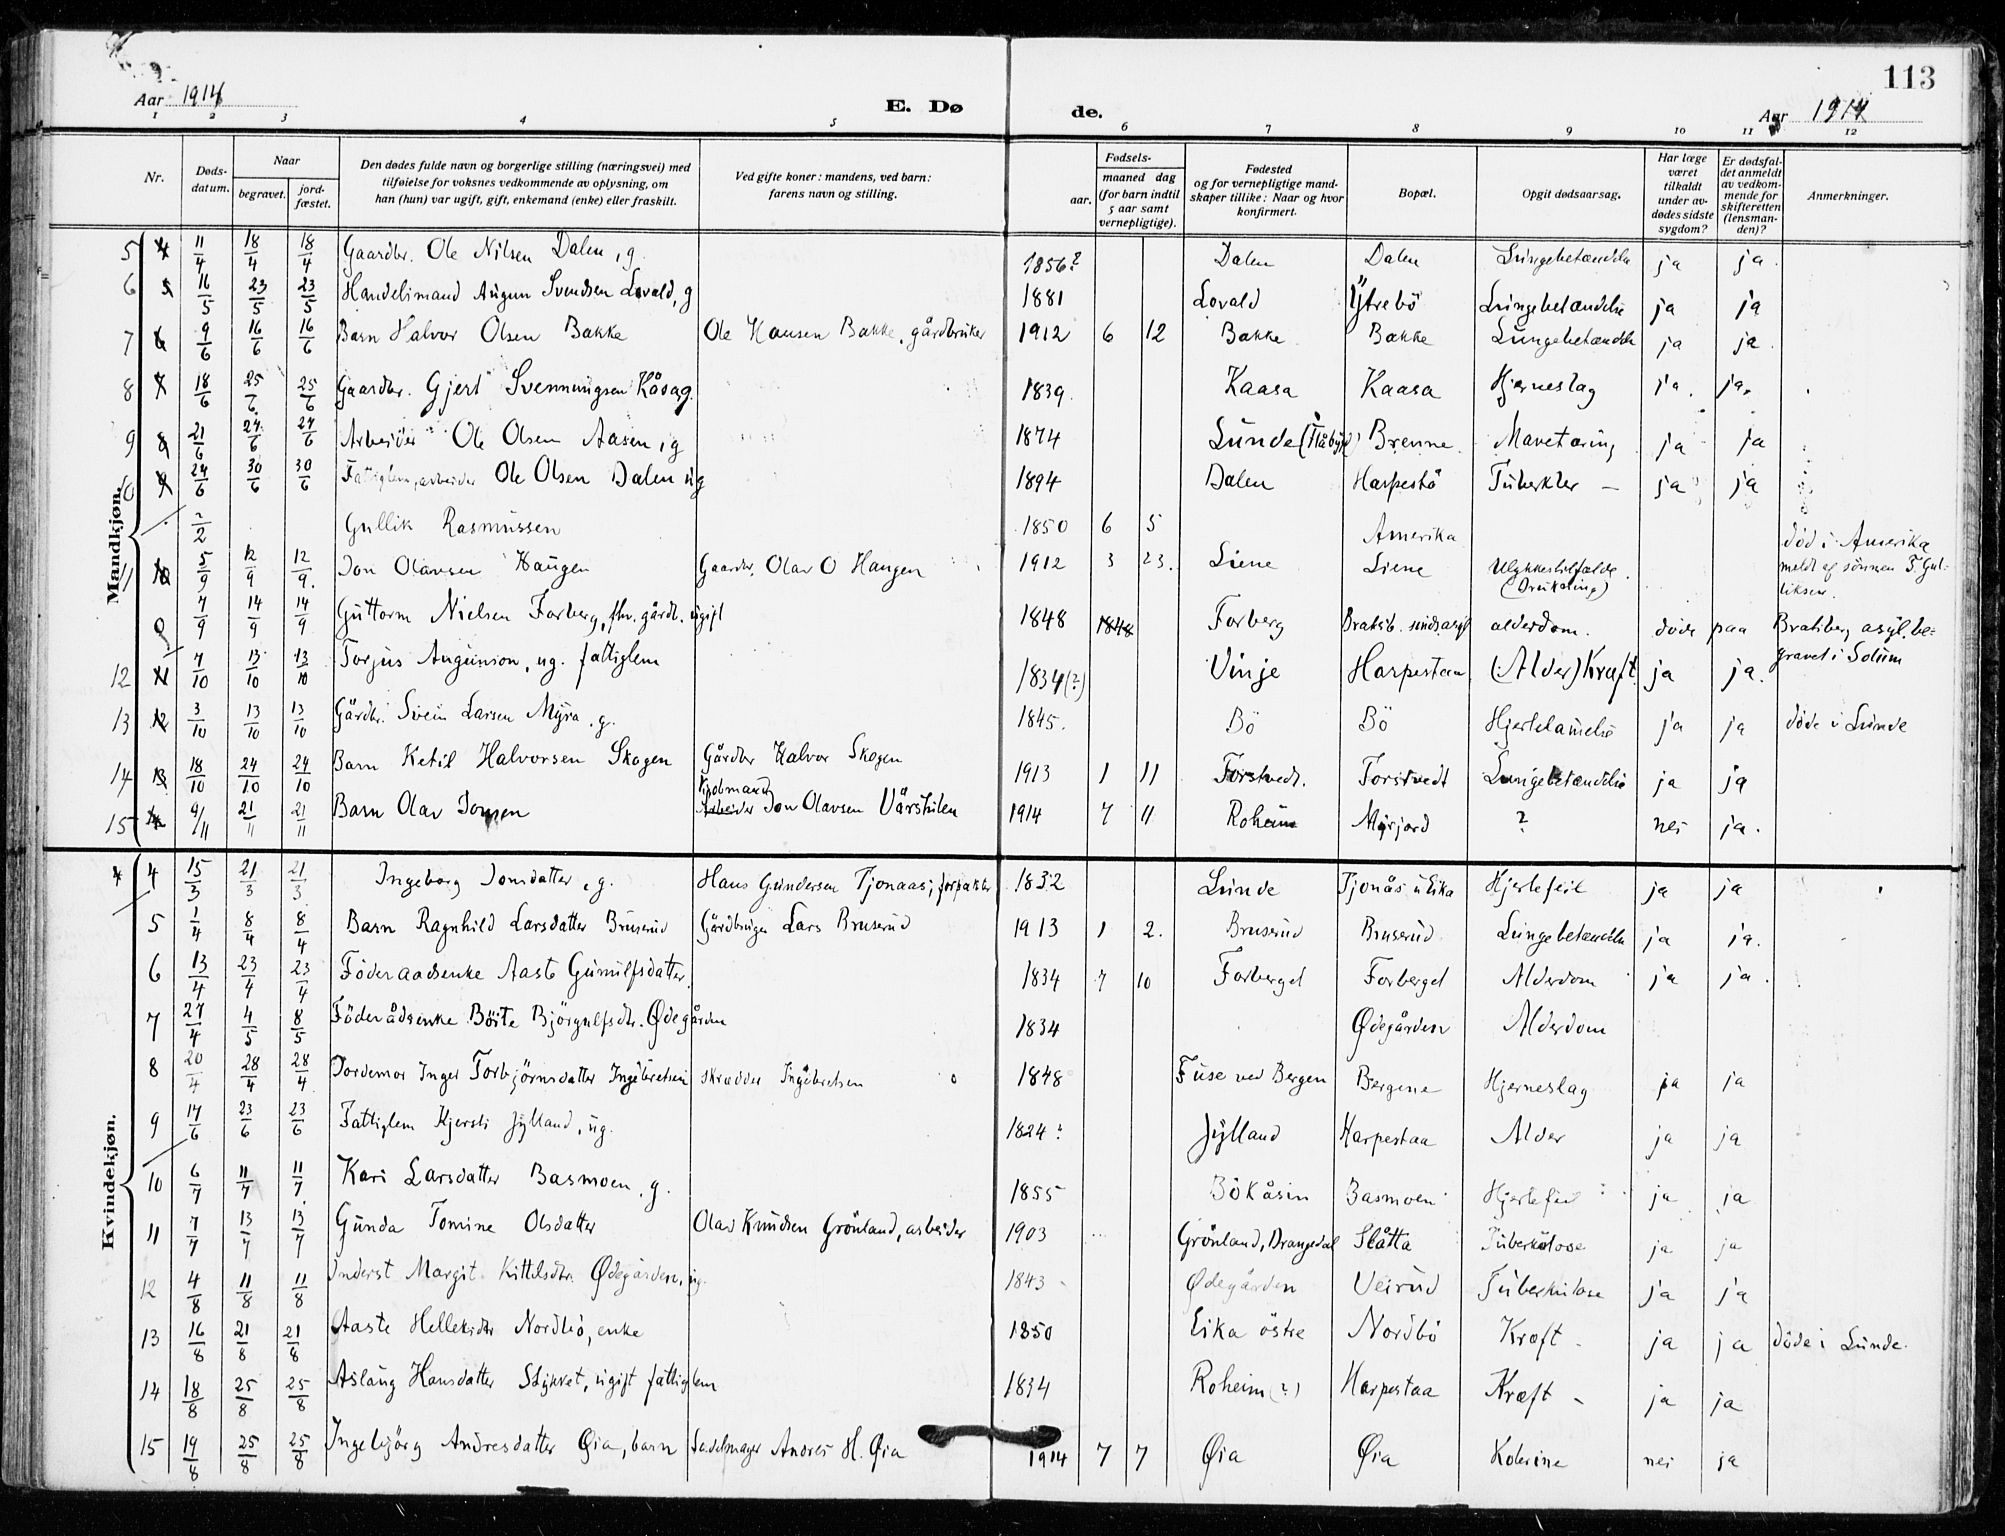 113
Aar 1914 E. Dø de. Aar 1914
1 2 3 4 5 6 7 8 9 10 11 12
Nr. Døds-datum. Naar begravet. jord-fæstet. Den dødes fulde navn og borgerlige stilling (næringsvei) med tilføielse for voksnes vedkommende av oplysning, om han (hun) var ugift, gift, enkemand (enke) eller fraskilt. Ved gifte koner: mandens, ved barn: farens navn og stilling. Fødsels- aar. maaned dag (for barn indtil 5 aar samt vernepligtige). Fødested og for vernepligtige mand-skaper tillike: Naar og hvor konfirmert. Bopæl. Opgit dødsaarsag. Har læge været tilkaldt under av-dødes sidste sygdom? Er dødsfal-det anmeldt av vedkom-mende for skifteretten (lensman-den)? Anmerkninger.
Mandkjøn.
5 4 11/4 18/4 18/4 Gaardbr. Ole Nilsen Dalen, g. 1856? Dalen Dalen Lungebetændelse ja ja.
6 5 16/5 23/5 23/5 Handelsmand Augun Svendsen Lovald, g 1881 Lovald Ytrebö Lungebetændelse ja ja
7 6 9/6 16/6 16/6 Barn Halvor Olsen Bakke Ole Hansen Bakke, gårdbruker 1912 6 12 Bakke Bakke Lungebetændelse ja ja.
8 7 18/6 25/6 25/6 Gaardbr. Gjert Svenningsen Kåsa g. 1839. Kaasa Kaasa Hjerneslag ja. ja.
9 8 21/6 27/6 27/6 Arbeider Ole Olsen Aasen, g 1874 Lunde (Flåbygd) Brenne Mavetæring ja ja
10 9 24/6 30/6 30/6 Fattiglem, arbeider Ole Olsen Dalen ug 1894 Dalen Harpestö Tuberkler — ja ja
2/2 Gullik Rasmussen 1850 6 5 Amerika død i Amerika
11 10 5/9 12/9 12/9. Jon Olavsen Haugen Gaardbr. Olav O Haugen 1912 3 23. Liene Liene Ulykkestilfælde. (Drukning) meldt af sönnen T. Gul-liksen.
7/9 14/9 14/9 Guttorm Nielsen Forberg, fhv. gårdb. ugift 1848 1848 Forberg Bratsb. sinds.asyl alderdom. døde paa Bratsberg asyl. be-gravet i Solum
12 11 7/10 13/10 13/10 Torjus Augunson, ug. fattiglem 1834(?) Vinje Harpestaa (Alder) Kræft ja ja.
13 12 3/10 13/10 13/10 Gårdbr. Svein Larsen Myra, g. 1845. Bö Bö Hjertelamelse ja ja døde i Lunde
14 13 18/10 24/10 24/10 Barn Ketil Halvorsen Skogen Gårdbr Halvor Skogen 1913 1 11 Forstvedt. Forstvedt Lungebetændelse ja ja
15 14 9/11 21/11 21/11 Barn Olav Jonsen Kjøbmand Arbeider Jon Olavsen Vårstulen 1914 7 11 Roheim Myrjord ? nei ja.
Kvindekjøn.
4 4 15/3 21/3 21/3 Ingeborg Jonsdatter, g. Hans Gundersen Tjonaas, forpakter 1832 Lunde Tjonås u Eika Hjertefeil ja ja
5 1/4 8/4 8/4 Barn Ragnhild Larsdatter Bruserud Gårdbruger Lars Bruserud 1913 1 2. Bruserud Bruserud Lungebetændelse ja ja.
6 13/4 23/4 23/4 Föderaadsenke Aaste Gunulfsdatter. 1834 7 10 Forberget Forberget Alderdom ja ja.
7 27/4 4/5 8/5 Föderådsenke Böite Björgulfsdtr. Ødegården 1834 Ødegården Alderdom
8 20/4 28/4 28/4 Jordemor Inger Torbjörnsdatter Ingebretsen skrædder Ingebretsen 1848 Fuse ved Bergen Bergene Hjerneslag ja ja
9 17/6 23/6 23/6 Fattiglem Kjersti Jylland, ug. 1824? Jylland Harpestaa Alder ja ja
10 6/7 11/7 11/7 Kari Larsdatter Basmoen, g. 1855 Bökåsin Basmoen Hjertefeil ja ja
11 7/7 13/7 13/7 Gunda Tomine Olsdatter Olav Knudsen Grönland, arbeider 1903 Grönland, Drangedal Slåtta Tuberkulose ja ja
12 4/8 11/8 11/8 Inderst Margit Kittilsdtr. Ødegården, ug. 1843 Ødegården Veirud Tuberkulose ja ja
13 16/8 21/8 21/8 Aaste Helleksdtr Nordbö, enke 1850 Eika östre Nordbö Kræft ja ja døde i Lunde.
14 18/8 25/8 25/8 Aslaug Hansdatter Stykket, ugift fattiglem 1834 Roheim (?) Harpestaa Kræft - ja ja
15 19/8 25/8 25/8 Ingebjörg Andresdatter Øia, barn Sadelmager Andres H. Øia 1914 7 7 Øia Øia Kolerine nei ja